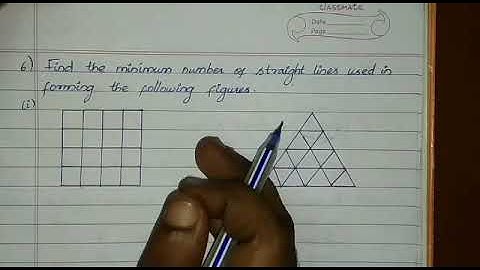 CLASSMATE
Date
Page
6) Find the minimum number of straight lines used in
forming the following figures.
(i)